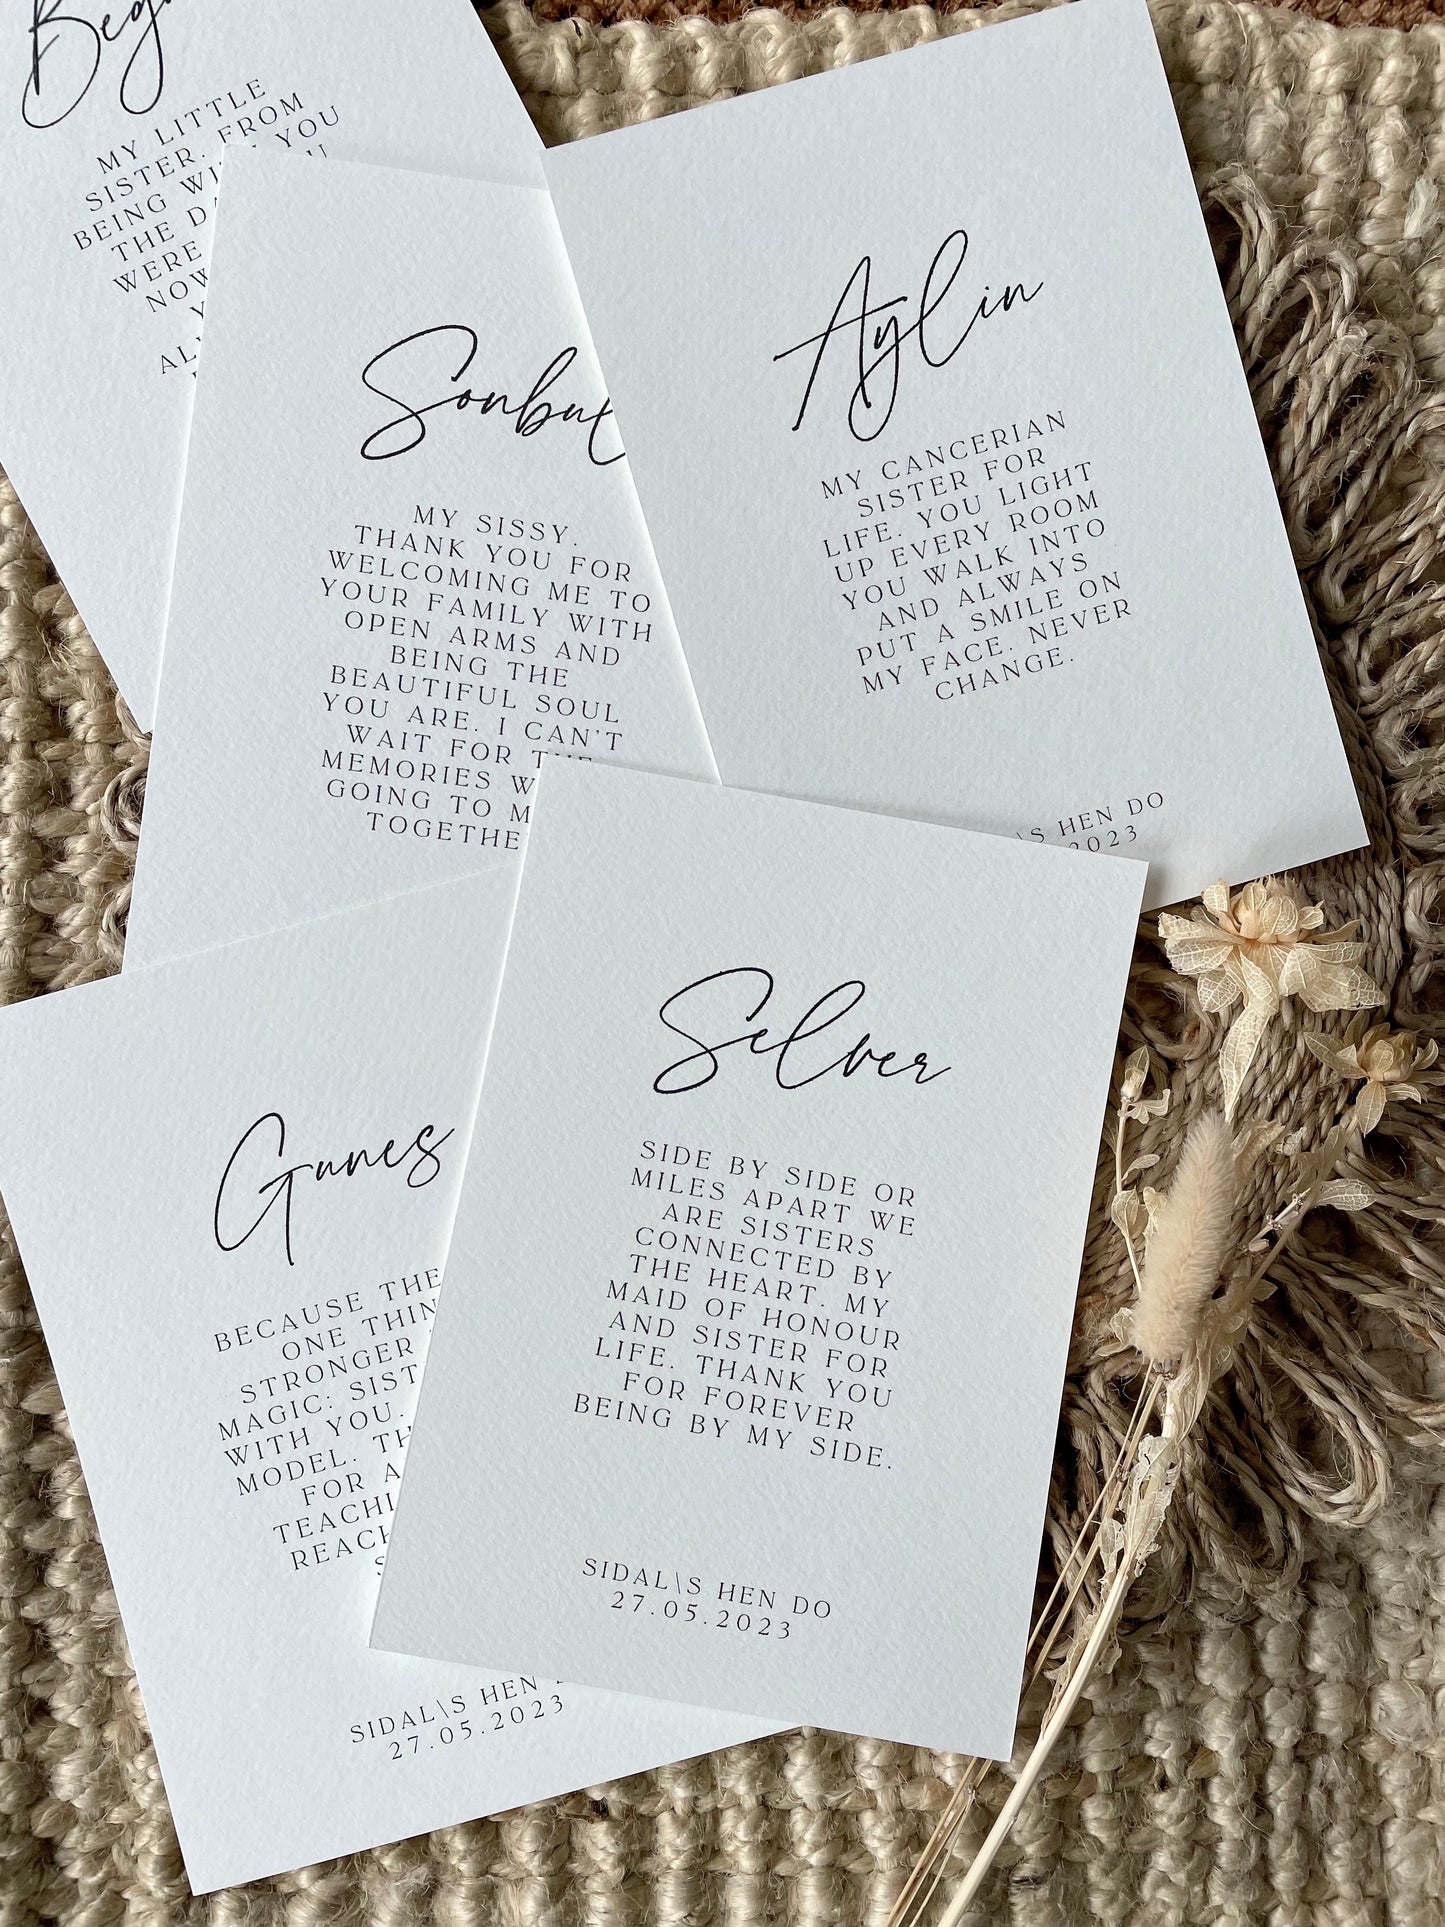 MY LITTLE
SISTER. FROM
BEING YOU
THE
WERE
NOW
Sonbul
MY SISSY.
THANK YOU FOR
WELCOMING ME TO
YOUR FAMILY WITH
OPEN ARMS AND
BEING THE
BEAUTIFUL SOUL
YOU ARE. I CAN'T
WAIT FOR THE
MEMORIES
GOING TO
Aylin
MY CANCERIAN
SISTER FOR
LIFE. YOU LIGHT
UP EVERY ROOM
YOU WALK INTO
AND ALWAYS
PUT A SMILE ON
MY FACE. NEVER
CHANGE.
\S HEN DO
2023
Gunes
BECAUSE THE
ONE
STRONGER
MAGIC:
WITH YOU.
MODEL.
FOR
SIDAL\S HEN
27.05.2023
Selver
SIDE BY SIDE OR
MILES APART WE
ARE SISTERS
CONNECTED BY
THE HEART. MY
MAID OF HONOUR
AND SISTER FOR
LIFE. THANK YOU
FOR FOREVER
BEING BY MY SIDE.
SIDAL\S HEN DO
27.05.2023